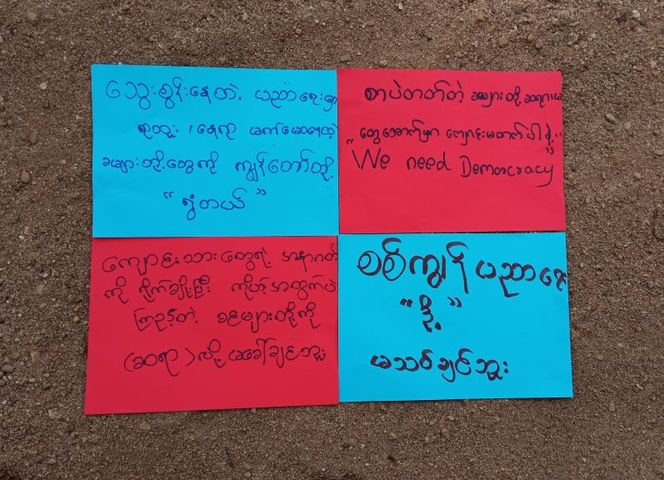 သွေးစွန်းနေတဲ့ ပညာရေးမှာ
ရာထူး / နေရာ မက်မောနေတဲ့
ခများတို့တွေကို ကျွန်တော်တို့
"ရွံတယ်"
စာပဲတတ်တဲ့ ခများတို့ ဆရာ/မ
တွေအောက်မှာ ကျောင်းမတက်ပါနဲ့
"We need Democracy"
ကျောင်းသားတွေရဲ့ အနာဂတ်
ကို ရိုက်ချိုးပြီး ကိုယ့်အတွက်ပဲ
ကြည့်တဲ့ ခများတို့ကို
(ဆရာ) လို့ မခေါ်ချင်ဘူး
စစ်ကျွန်ပညာရေး
"ဒို့"
မသင်ချင်ဘူး